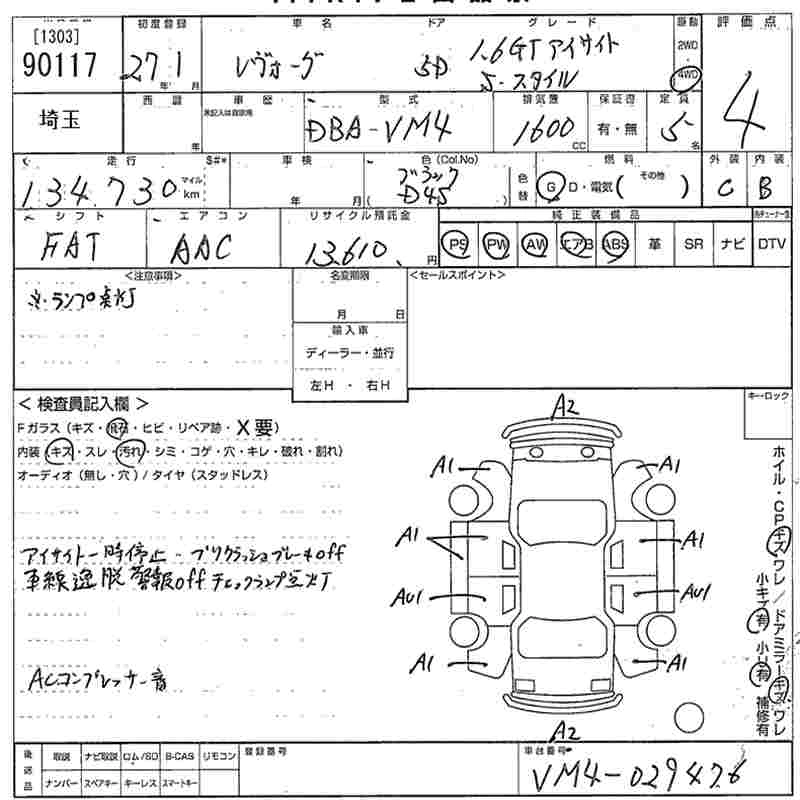 [1303]
90117
初度登録 車名 ドア グレード 駆動 評価点
27年1月 レヴォーグ 5D 1.6GTアイサイト
S-スタイル
2WD
4WD
4
埼玉
西暦 年 車歴 型式 排気量 保証書 定員
未記入は自家用
DBA-VM4 1600 CC 有・無 5名
走行 S#* 車検 色(Col.No) 燃料 外装 内装
134,730 マイル km 年 月 ブラック
( D4S ) 色替 G D・電気( その他 ) C B
シフト エアコン リサイクル預託金 純正装備品
FAT AAC 13,610円 PS PW AW エアB ABS 革 SR ナビ DTV
<注意事項> 名変期限 <セールスポイント>
※ランプ点灯
月 日
輸入車
ディーラー・並行
左H ・ 右H
<検査員記入欄>
Fガラス(キズ・飛石・ヒビ・リペア跡・X要)
内装(キズ・スレ・汚れ・シミ・コゲ・穴・キレ・破れ・割れ)
オーディオ(無し・穴)/タイヤ(スタッドレス)
アイサイト一時停止 プリクラッシュブレーキoff
車線逸脱警報off チェックランプ点灯
ACコンプレッサー音
キーロック
A2
A1 A1
A1 A1
AU1 AU1
A1 A1
A2
ホイル・CPキズワレ/ドアミラーキズワレ
小キズ有 小凹有 補修有
後送品 取説 ナビ取説 ロム/SD B-CAS リモコン 登録番号 車台番号
ナンバー スペアキー キーレス スマートキー
VM4-029476